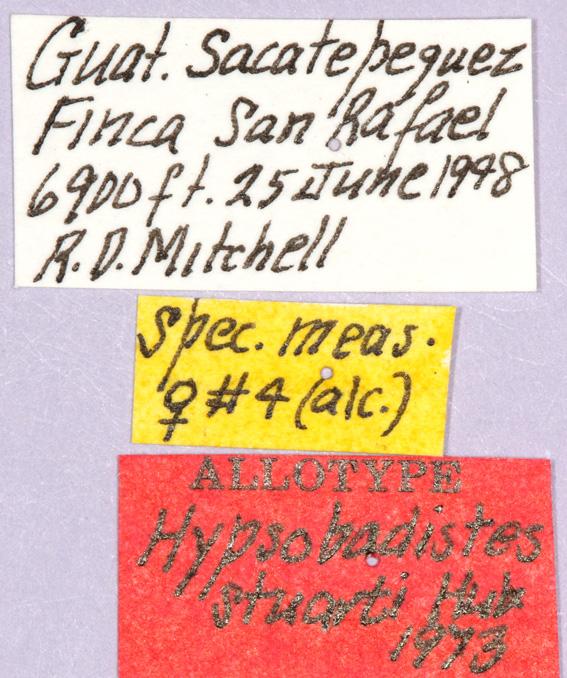 Guat. Sacatepequez
Finca San Rafael
6900 ft. 25 June 1948
R.D. Mitchell
Spec. meas.
♀ #4 (alc.)
ALLOTYPE
Hypsobadistes
stuarti Hub
1973